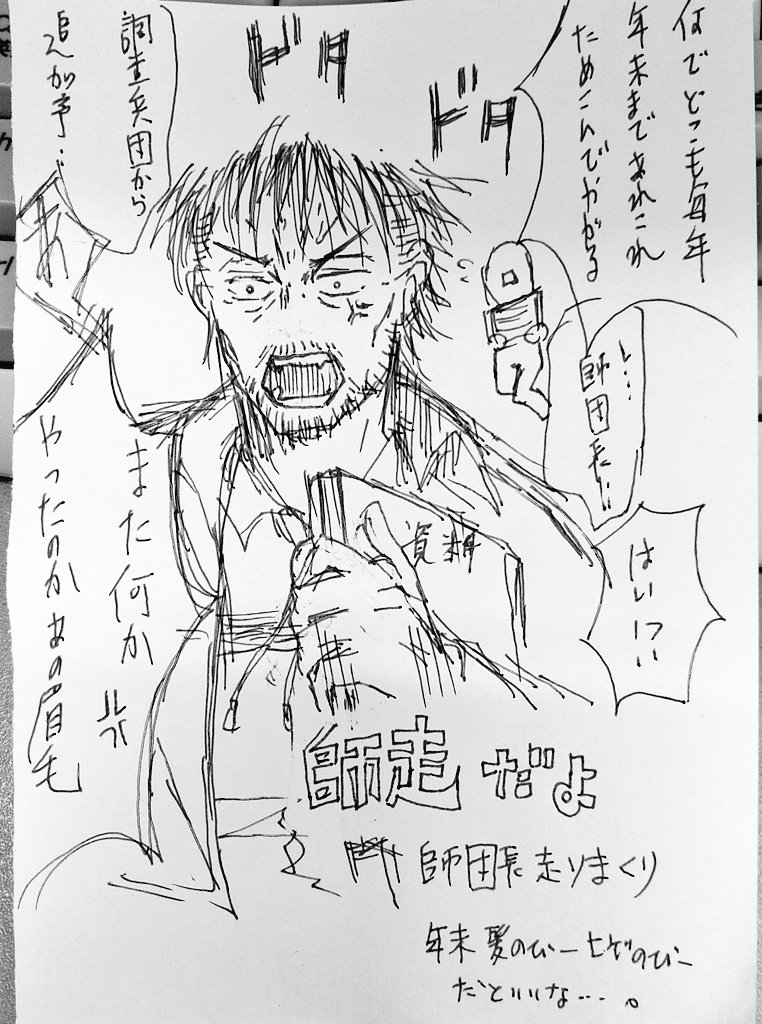 何でどこも毎年
年末まであれこれ
ためこんでやがる
ドタ
ドタ
し…
師団長!!
はい!?
調査兵団から
追加予…
あ
また何か
やったのかあの眉毛
資料
師走だよ
師団長走りまくり
年末髪のびーヒゲのびー
だといいな…。